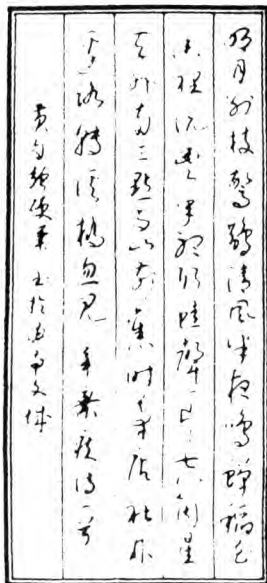 明月别枝驚鵲清風半夜鳴蟬稻花
香裡說豐年聽取蛙聲一片七八個星
天外兩三點雨山前舊時茅店社林
邊路轉溪橋忽見 辛棄疾詩一首
硬筆書於